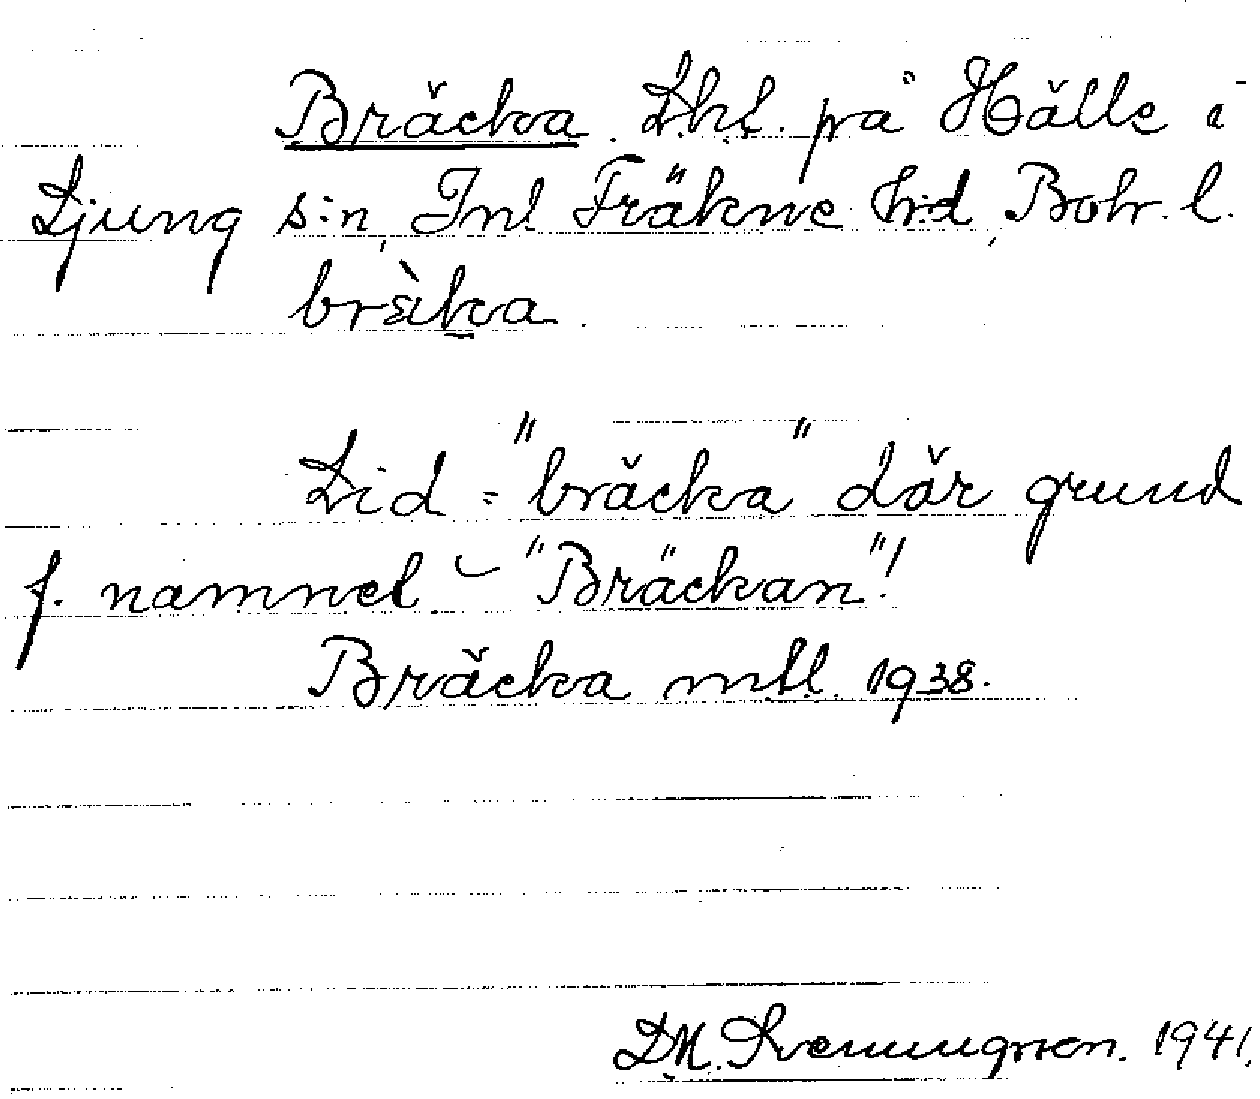 Bräcka. Lhl. på Hälle i
Ljung s:n, Inl. Fräkne hd, Boh. l.
bräka.
Lid = "bräcka" där grund
f. namnet "Bräckan"!
Bräcka mtl. 1938.
D.M. Svenningsson. 1941.